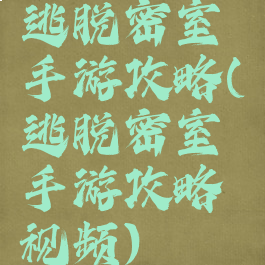 逃脱密室
手游攻略(
逃脱密室
手游攻略
视频)